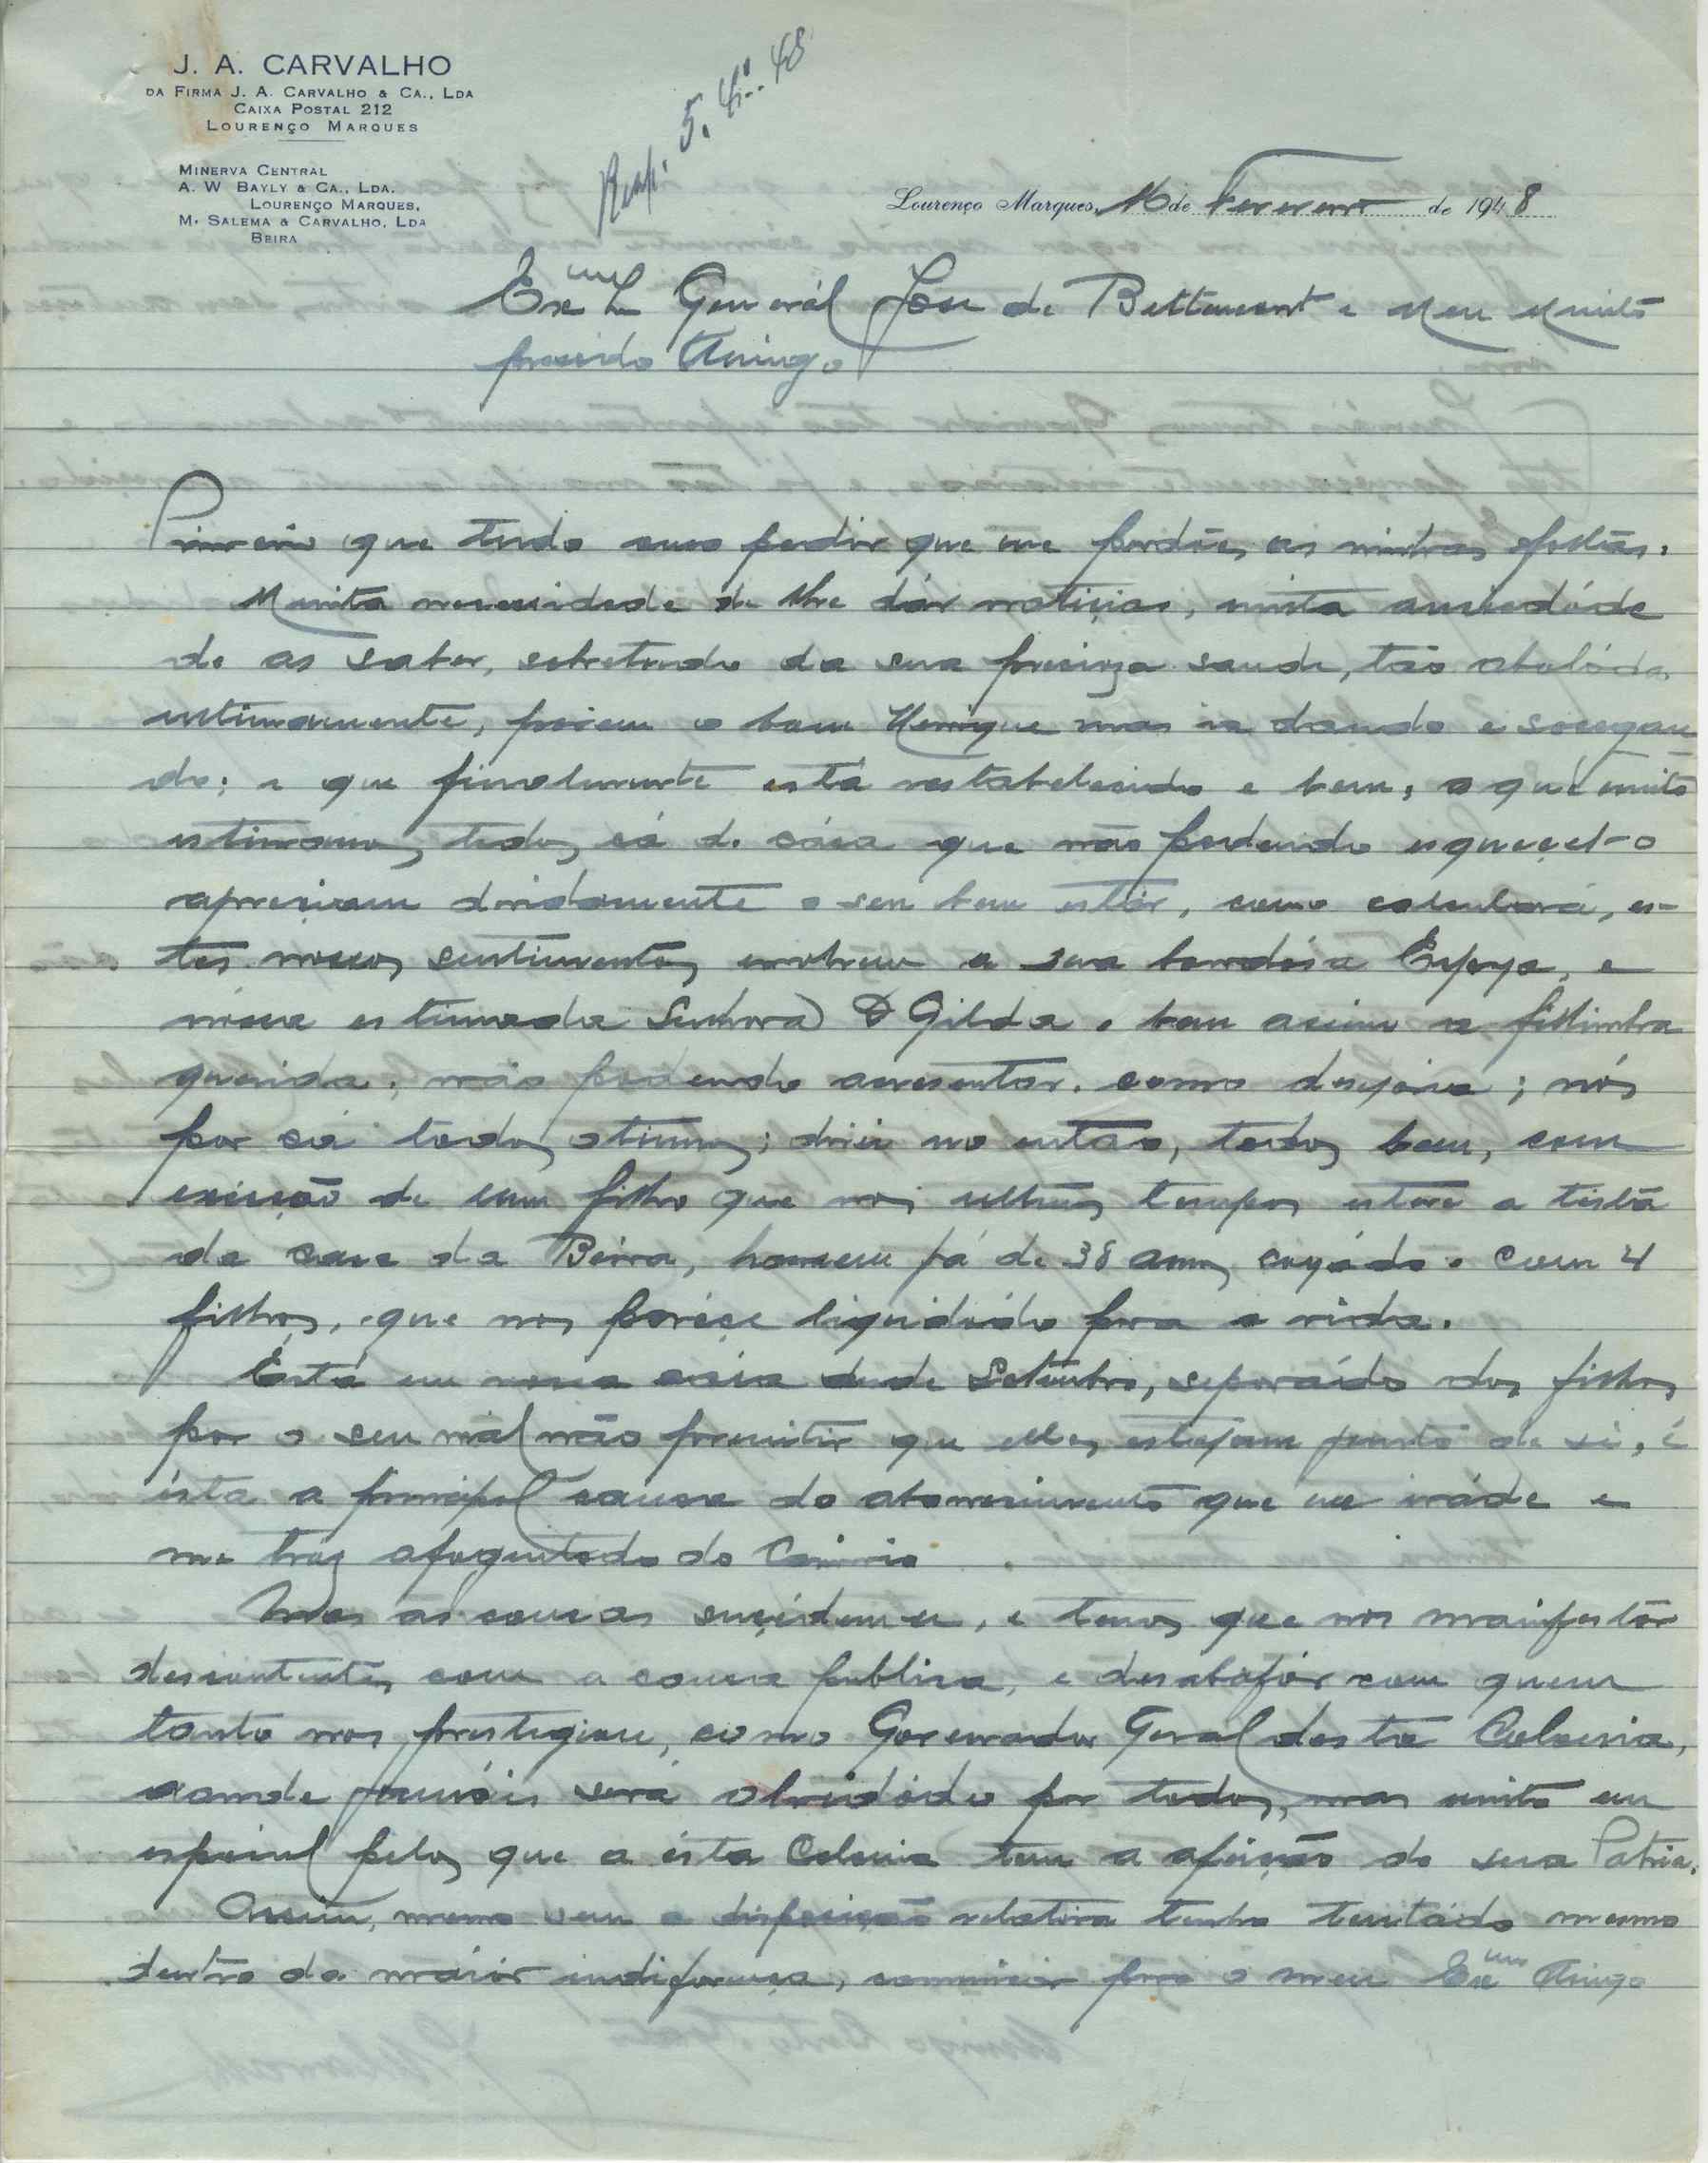 J. A. CARVALHO
DA FIRMA J. A. CARVALHO & CA., LDA
CAIXA POSTAL 212
LOURENÇO MARQUES
MINERVA CENTRAL
A. W BAYLY & CA., LDA.
LOURENÇO MARQUES,
M. SALEMA & CARVALHO, LDA
BEIRA
Resp. 5.4.48
Lourenço Marques, 16 de Fevereiro de 1948
Exmo Snr General José de Bettencourt e Meu Muito
presado Amigo
Primeiro que tudo pedir que me perdôe as minhas faltas.
Muita necessidade de lhe dár noticias, muita anciedáde
de as saber, sobretudo da sua preciosa saude, tão abaláda
ultimamente, porem o bom Henrique mas ia dando e socegan
do; e que finalmente está restabelecido e bem, o que muito
estimamos todos cá de cása que não podendo esquecel-o
apreciam devidamente o seu bem estár, como calculará, es-
tes nossos sentimentos envolvem a sua bondósa Esposa, e
nossa estimada Senhora D Gilda e bem assim a filhinha
querida, não podendo acrescentar, como desejava; nós
por cá todos otimos; direi no então, todos bem, com
exceção de um filho que nos ultimos tempos esteve a testa
da casa da Beira, homem já de 38 anos casádo e com 4
filhos, que nos parece liquidádo para a vida.
Está em nossa cása desde Setembro, separádo dos filhos
por o seu mál não permitir que elles estejam junto de si, é
ésta a principal causa do aborrecimento que me inváde e
me traz afugentado do Convivio.
Mas as cousas sucédem-se, e temos que nos manifestár
descontentes com a cousa publica, e desabafár com quem
tanto nos prestigiou, como Governador Geral desta Colonia,
aonde jamáis será olvidádo por todos, mas muito em
especial pelos que a ésta Colonia tem a afeição de sua Patria.
Assim, mesmo sem a disposição relativa tenho tentádo mesmo
dentro da maiór indiferença, comunicar para o meu Exmo Amigo